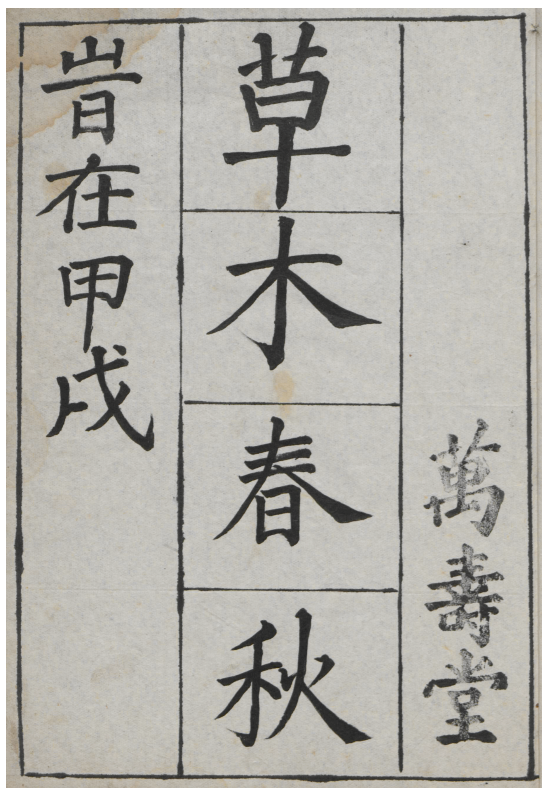 萬壽堂
草木春秋
旹在甲戌